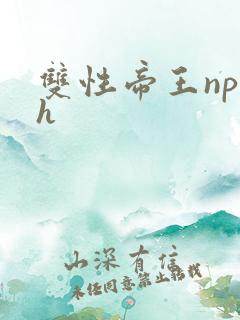 雙性帝王np
h
山深有信
未经同意禁止转载